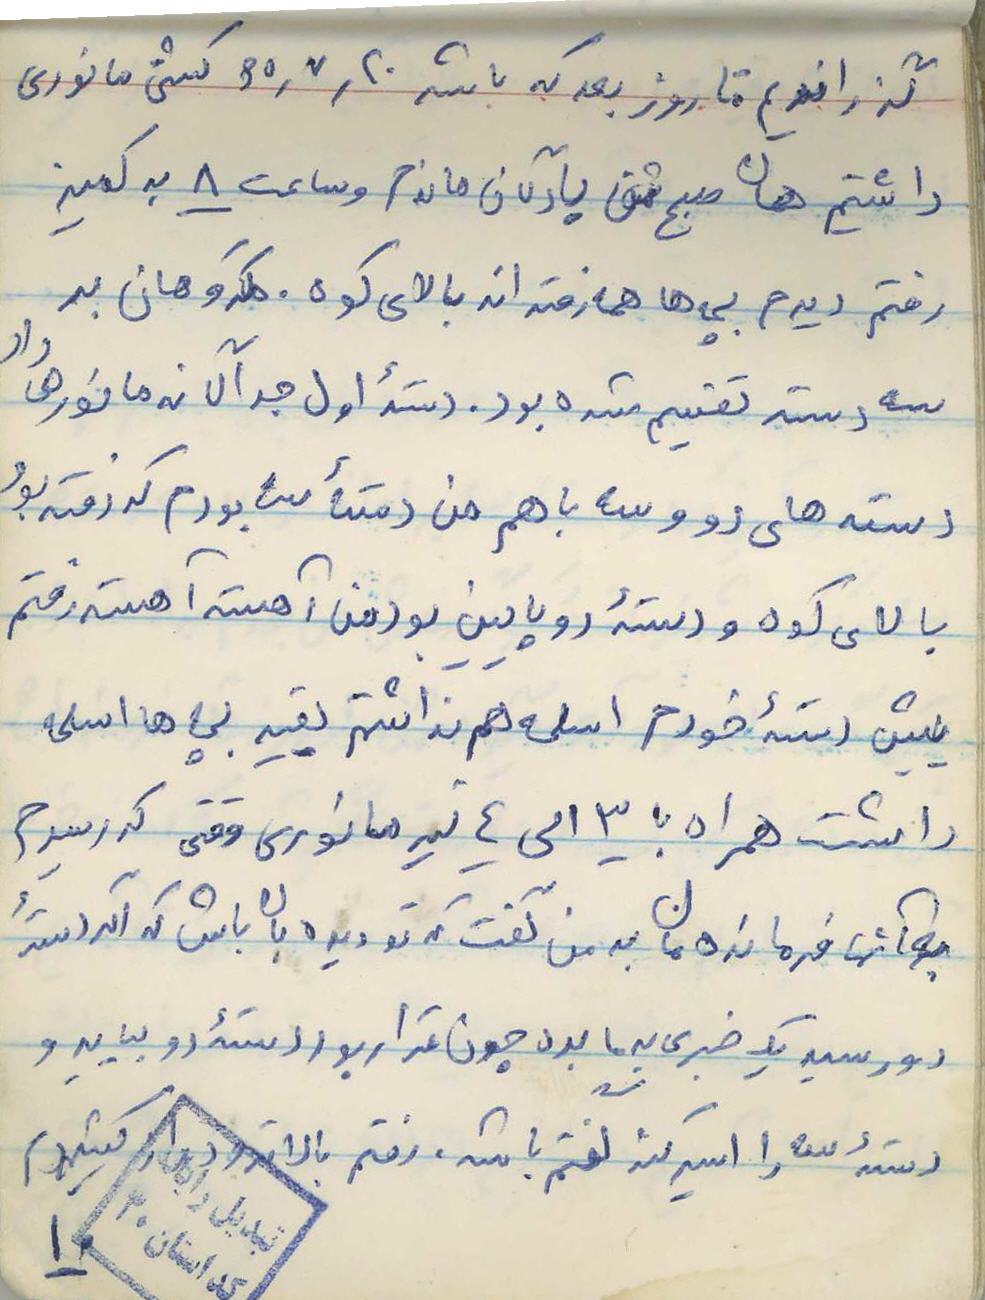 گذراندیم تا روز بعد که باشد ۲۰ر۷ر۶۵ کشتی مانوری
داشتیم همان صبح پادگان ماندم و ساعت ۸ به کمین
رفتم دیدم بچه‌ها همه رفته‌اند بالای کوه. گروهان به
سه دسته تقسیم شده بود. دستهٔ اول جداگانه مانور داد
دسته های دو و سه با هم من دستهٔ سه بودم که رفته بود
بالای کوه و دستهٔ دو پایین بود من آهسته آهسته رفتم
پیش دستهٔ خودم اسلحه هم نداشتم بقیه بچه ها اسلحه
داشت همراه با ۳ الی ٤ تیر مانوری وقتی که رسیدم
فرمانده مان به من گفت که تو دیده بان باش که اگر دستهٔ
دو رسید یک خبری به ما بده چون قرار بود دستهٔ دو بیاید و
دستهٔ سه را اسیر کند گفتم باشه. رفتم بالاتر
تبدیل
کد استان ۳۰